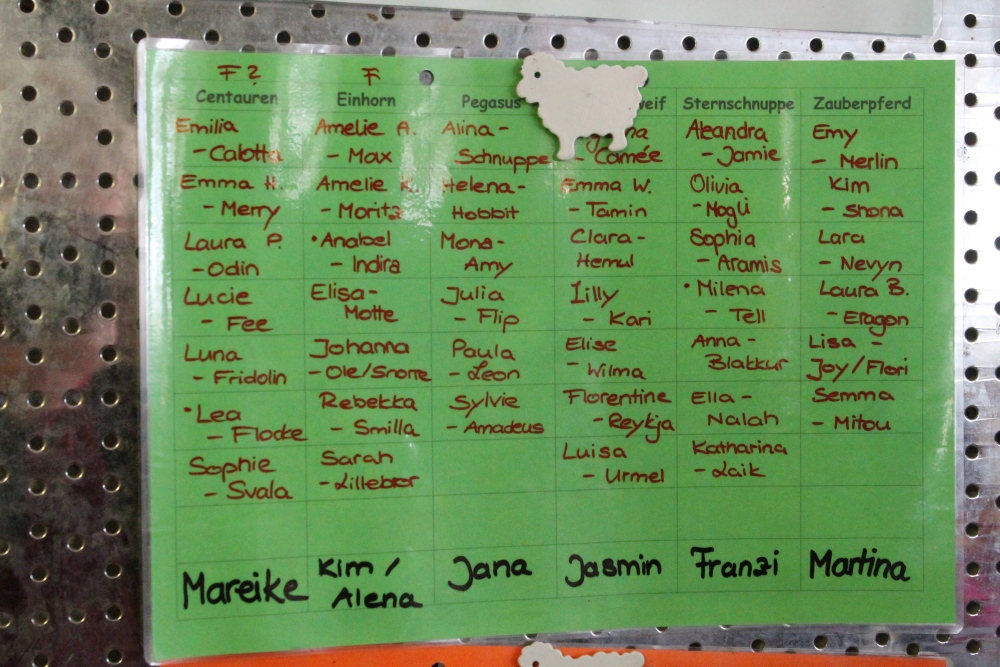 F ? F
Centauren Einhorn Pegasus Sternschnuppe Zauberpferd
Emilia Amelie A. Alina- Aleandra Emy
- Calotta - Max Schnuppe - Camée - Jamie - Merlin
Emma H. Amelie K. Helena- Emma W. Olivia Kim
- Merry - Moritz Hobbit - Tamin - Mogli - Shona
Laura P. • Anabel Mona- Clara- Sophia Lara
- Odin - Indira Amy Hemul - Aramis - Nevyn
Lucie Elisa- Julia Lilly • Milena Laura B.
- Fee Motte - Flip - Kari - Tell - Eragon
Luna Johanna Paula Elise Anna- Lisa -
- Fridolin - Ole/Snorre - Leon - Wilma Blakkur Joy/Flori
• Lea Rebekka Sylvie Florentine Ella- Semma
- Flocke - Smilla - Amadeus - Reykja Nalah - Mitou
Sophie Sarah Luisa Katharina
- Svala - Lillebror - Urmel - Laik
Mareike Kim / Jana Jasmin Franzi Martina
Alena